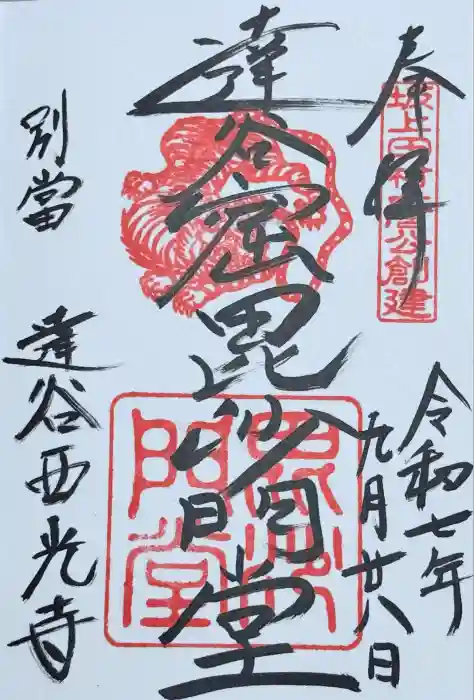 奉拝
坂上田村麿公創建
令和七年
九月廿八日
達谷窟毘沙門堂
毘沙
門堂
別當
達谷西光寺